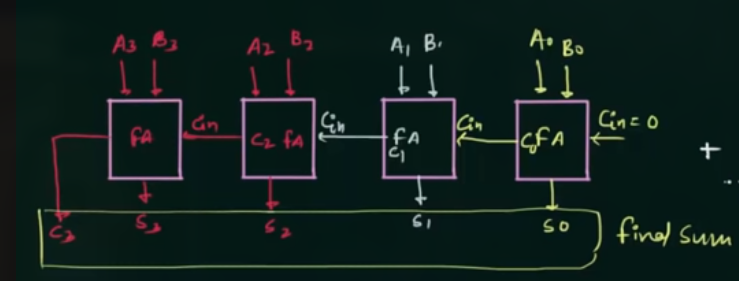 A3 B3 A2 B2 A1 B1 A0 B0
FA Cin C2 FA Cin FA Cin C0 FA Cin=0
C1
+
C3 S3 S2 S1 S0 final sum
..